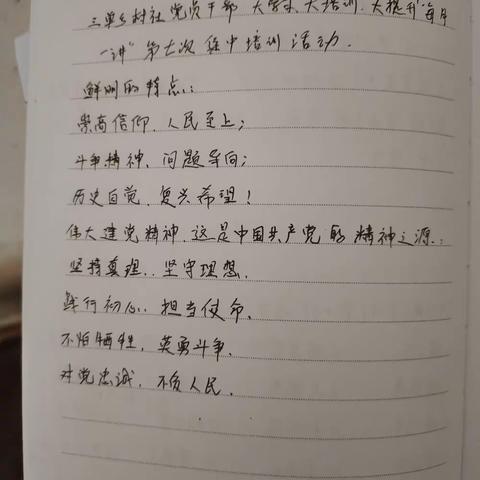 三单乡村社党员干部“大学习、大培训、大提升”每月
一讲”第七次集中培训活动.
鲜明的特点:
崇高信仰、人民至上;
斗争精神、问题导向;
历史自觉、复兴希望!
伟大建党精神、这是中国共产党的精神之源:
坚持真理、坚守理想.
践行初心、担当使命.
不怕牺牲，英勇斗争.
对党忠诚、不负人民.